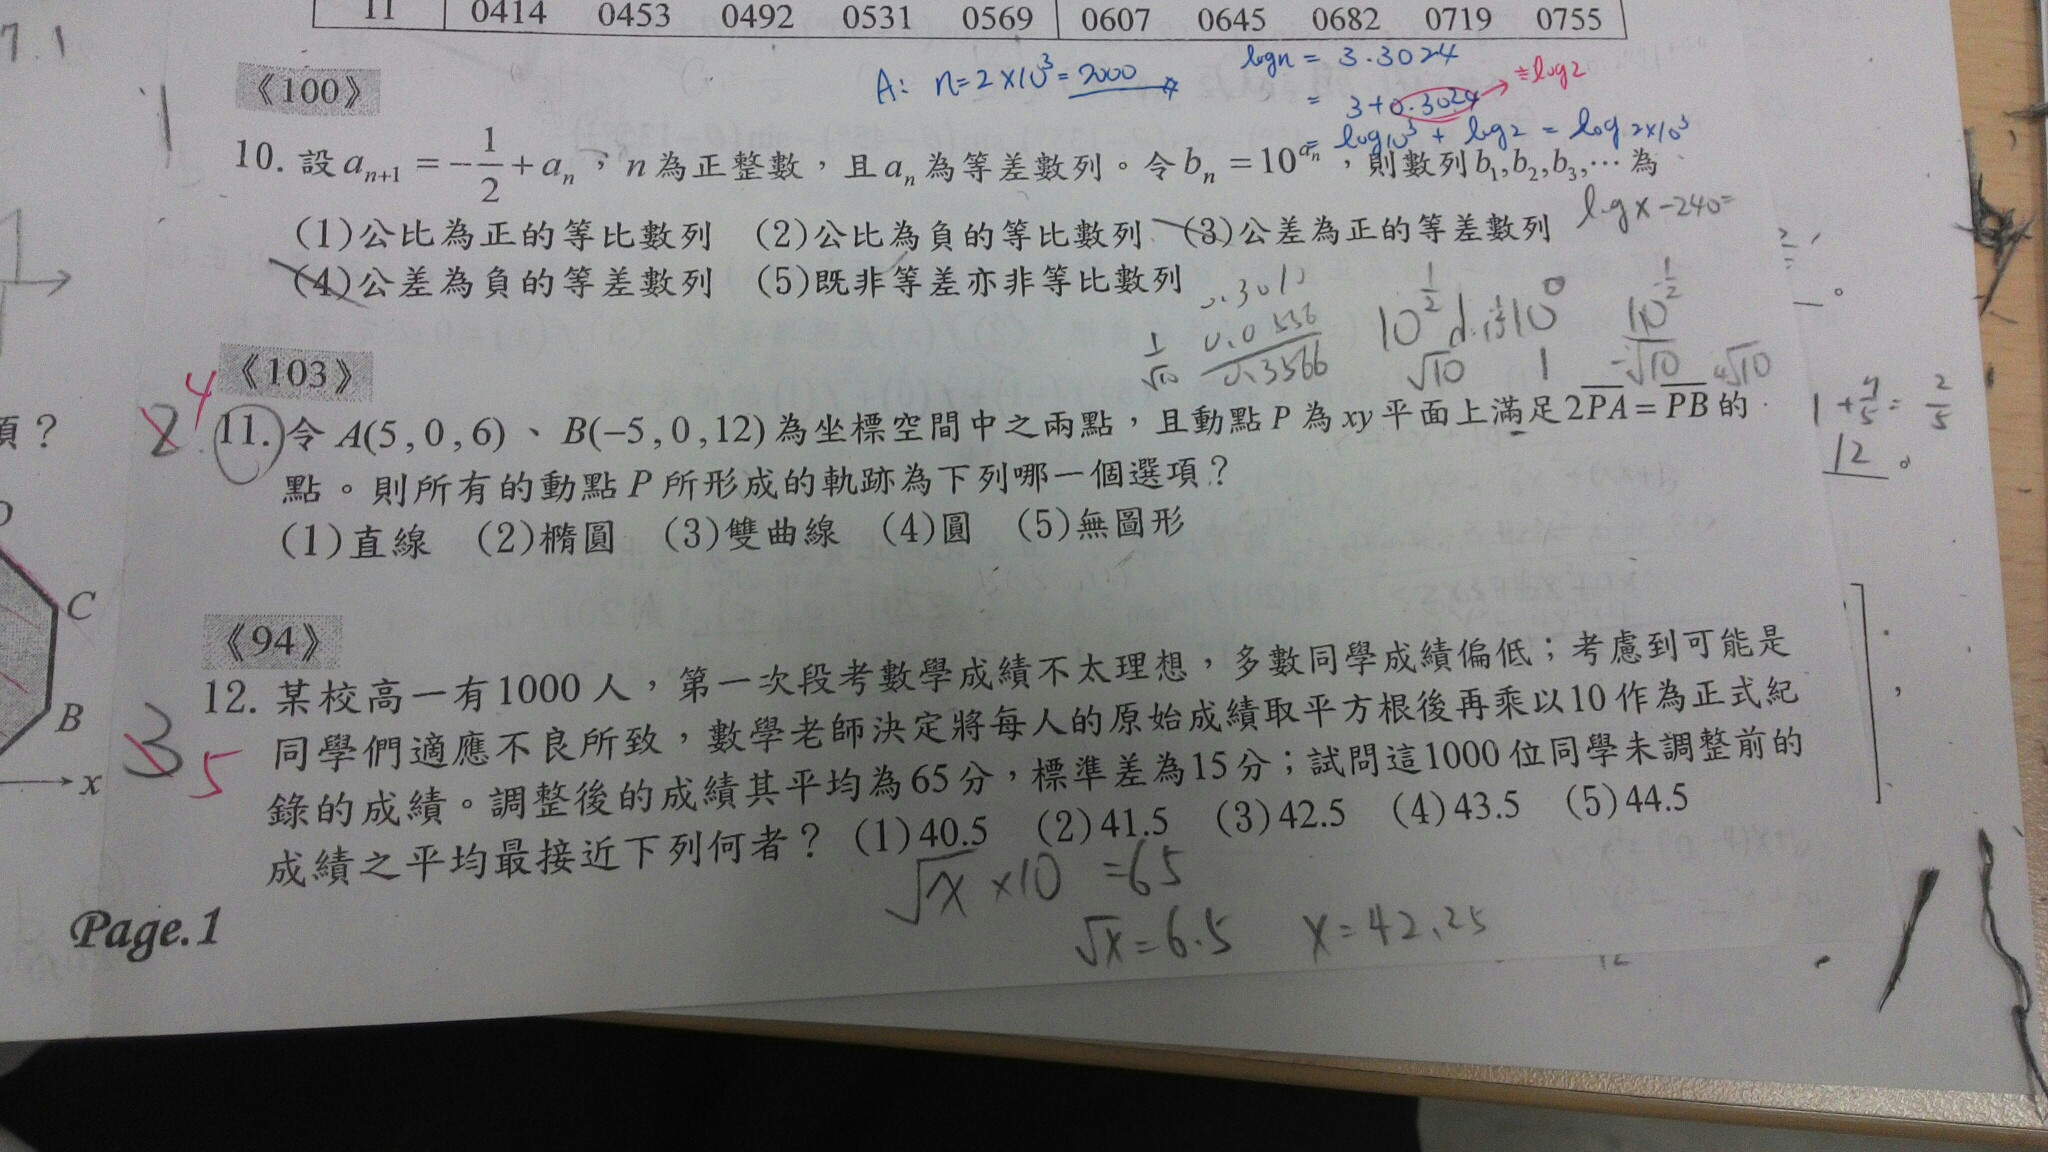 7.1
11 0414 0453 0492 0531 0569 0607 0645 0682 0719 0755
《100》
A: n=2×10³=2000
logn = 3.3024
= 3+0.3024 ≒log2
= log10³ + log2 = log2×10³
10. 設 aₙ₊₁ = -1/2 + aₙ，n 為正整數，且 aₙ 為等差數列。令 bₙ = 10^aₙ，則數列 b₁,b₂,b₃,⋯ 為
(1)公比為正的等比數列 (2)公比為負的等比數列 (3)公差為正的等差數列
logx-240=
(4)公差為負的等差數列 (5)既非等差亦非等比數列
0.3010
0.0556
0.3566
1/√10
√10 1 -√10 4√10
《103》
4
2
11. 令 A(5,0,6)、B(-5,0,12)為坐標空間中之兩點，且動點 P 為 xy 平面上滿足 2PA=PB 的
點。則所有的動點 P 所形成的軌跡為下列哪一個選項？
(1)直線 (2)橢圓 (3)雙曲線 (4)圓 (5)無圖形
？
12。
C
B
x
《94》
3
5
12. 某校高一有1000人，第一次段考數學成績不太理想，多數同學成績偏低；考慮到可能是
同學們適應不良所致，數學老師決定將每人的原始成績取平方根後再乘以10作為正式紀
錄的成績。調整後的成績其平均為65分，標準差為15分；試問這1000位同學未調整前的
成績之平均最接近下列何者？ (1)40.5 (2)41.5 (3)42.5 (4)43.5 (5)44.5
√x ×10 =65
√x=6.5 x=42.25
Page.1